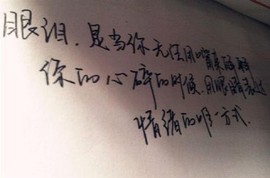 眼泪,是当你无法用嘴来解释
你的心碎的时候,用眼睛表达
情绪的唯一方式.